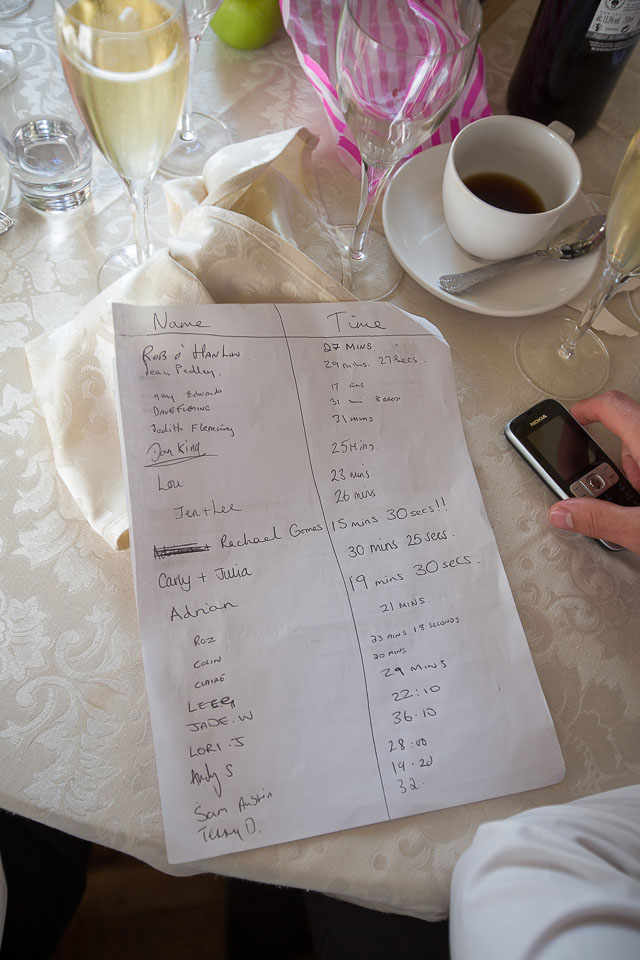 Name Time
ROB O'HANLON. 27 MINS
Sean Pedley. 29 mins. 27 secs.
Edwards 17 mins
DAVE FLEMING 31 min 8 secs
Judith Flemming 31 mins
Dan King 25 Mins.
Lou 23 mins
Jen + Lee 26 mins
Rachael Gomes 15 mins 30 secs!!
Carly + Julia 30 mins 25 secs.
Adrian 19 mins 30 secs.
ROZ 21 MINS.
COLIN 23 MINS 13 SECONDS
CLAIRE 20 MINS.
LEE 29 MINS
JADE.W 22:10
LORI.J 36.10
Andy S 28:00
Sam Austin 19.20
Terry D. 32.
NOKIA